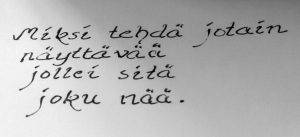 Miksi tehdä jotain
näyttävää
jollei sitä
joku nää.